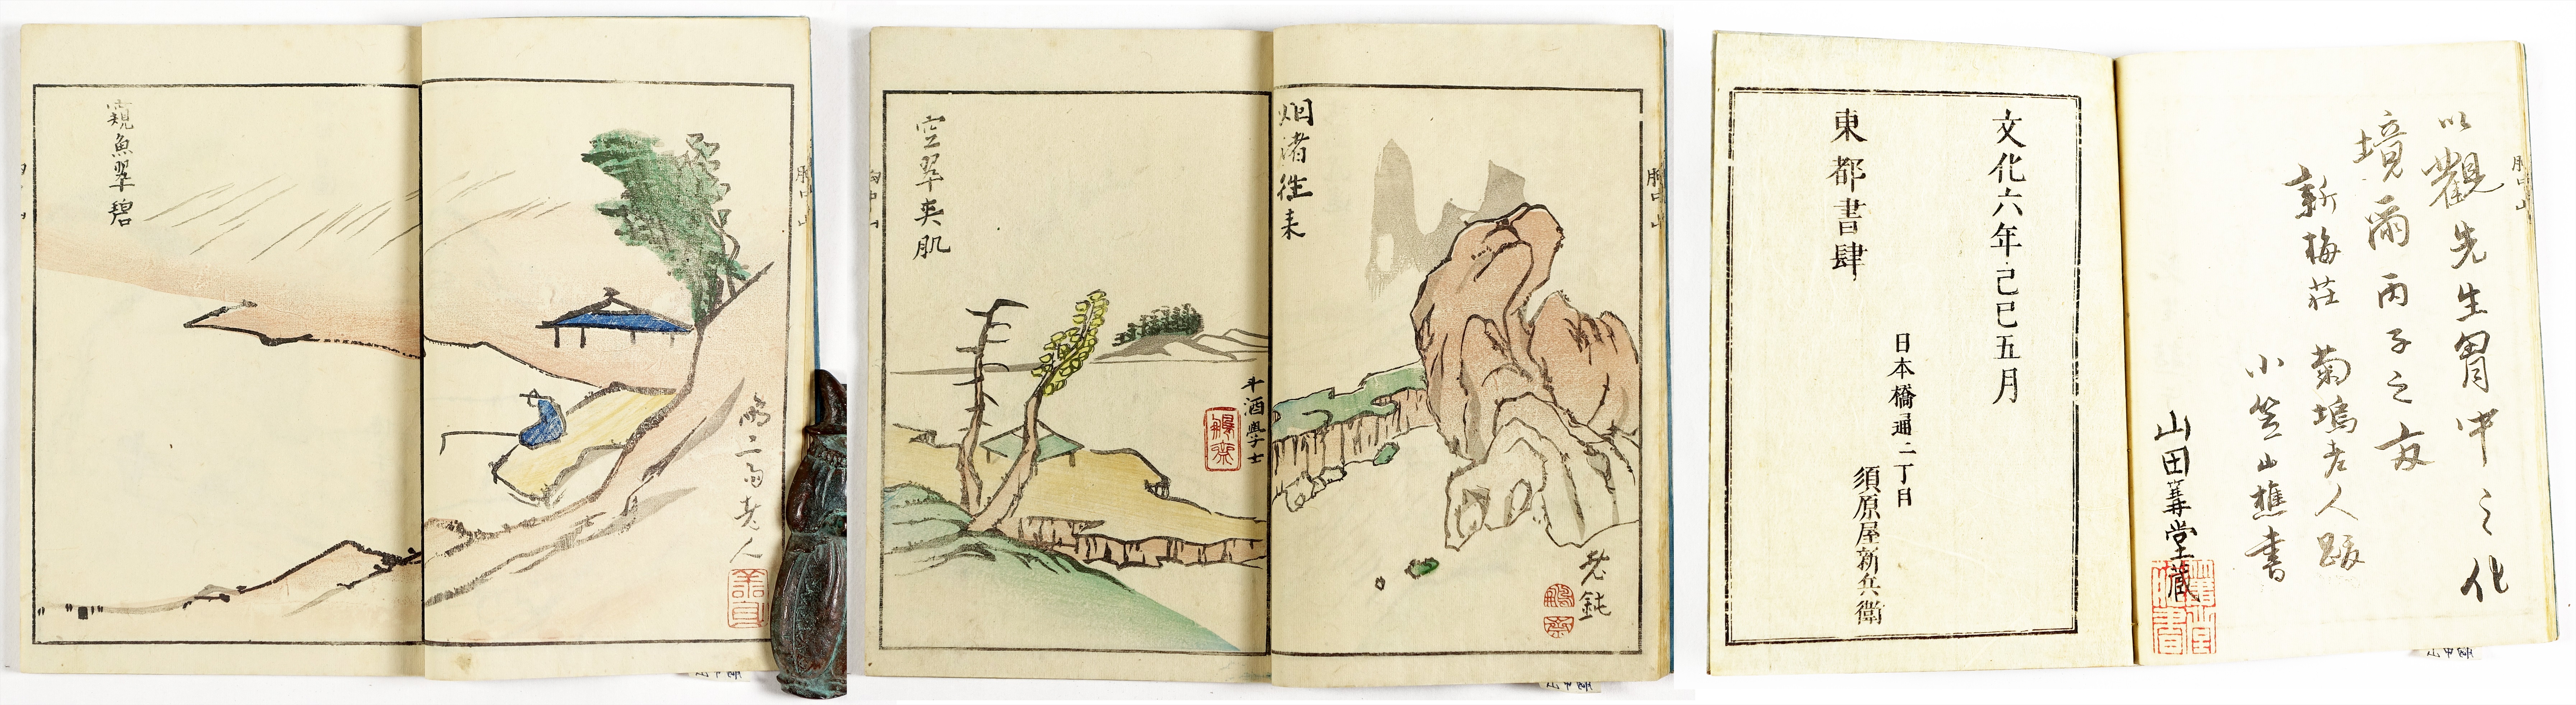 窺魚翠碧
鵬二而老人
烟渚徃来
老鈍
鵬齋
空翠夾肌
斗酒學士
鵬齋
胸中山
以觀先生胷中之化
境爾丙子之友
新梅荘 菊塢老人跋
小笠山樵書
山田
堂蔵
文化六年己巳五月
日本橋通二丁目
須原屋新兵衛
東都書肆